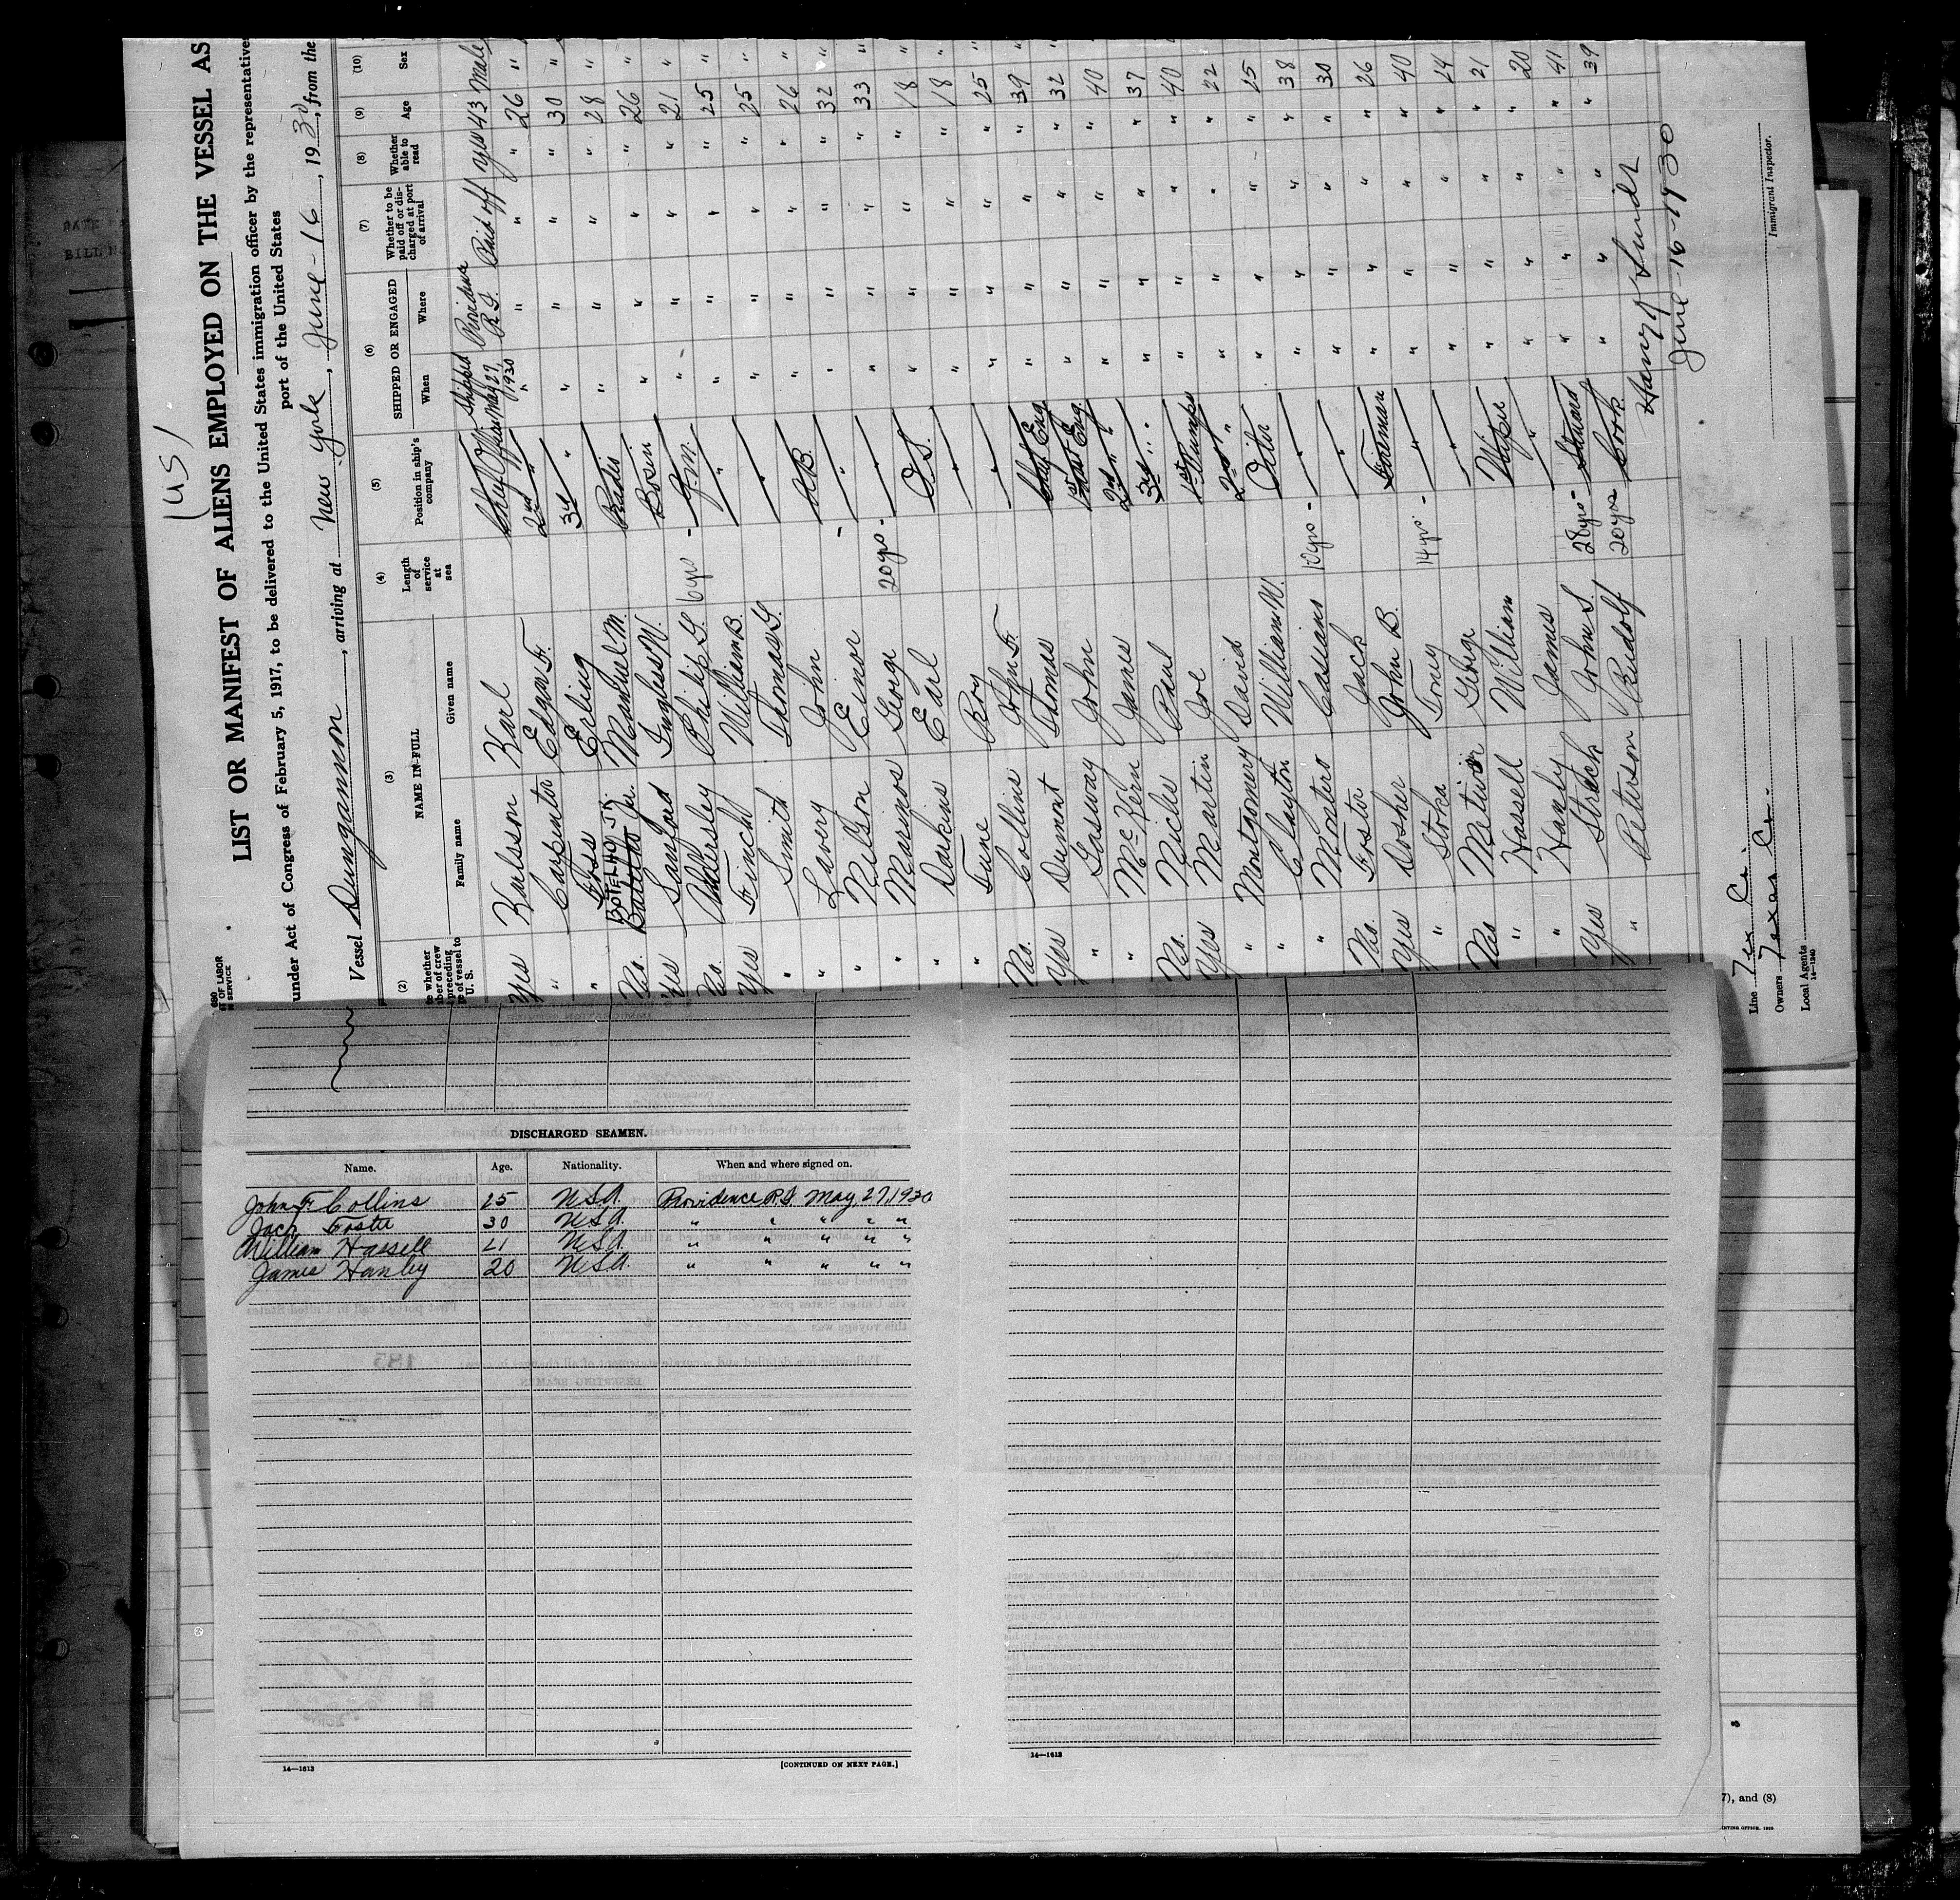 (US)
LIST OR MANIFEST OF ALIENS EMPLOYED ON THE VESSEL AS
under Act of Congress of February 5, 1917, to be delivered to the United States immigration officer by the representative
port of the United States
Vessel Dungannon, arriving at New York, June-16, 1930, from the
(2) (3) (4) (5) (6) (7) (8) (9) (10)
NAME IN FULL
Family name Given name
Length of service at sea
Position in ship's company
SHIPPED OR ENGAGED
When Where
Whether to be paid off or discharged at port of arrival
Whether able to read
Age
Sex
Yes Karlsson Karl Chief Officer Shipped May 27, 1930 Providence R.I. Paid off yes 43 Male
" Carpenter Edgar F. 2nd " " " " " 26 "
" Foss Erling 3rd " " " " " 30 "
No. BOTELHO JR. Manuel M. Radio " " " " 28 "
Yes Sanford Ingless W. Bosin " " " " 26 "
No. Addersley Philip G. 6 yrs - Q.M. " " " " 21 "
Yes Finch William B. " " " " " 25 "
" Smith Thomas G. " " " " " 25 "
" Lavery John A.B. " " " " 26 "
" Nilson Einor - " " " " " 32 "
" Marinos George 20 yrs - " " " " " 33 "
" Darkins Earl O.S. " " " " 18 "
" Fune Roy " " " " " 18 "
No. Collins John F. " " " " " 25 "
Yes Dumont Thomas Chief Eng. " " " " 39 "
" Gasway John 1st Asst Eng. " " " " 32 "
" McKern James 2nd " " " " " " 40
No. Nichs Paul 3rd " " " " " " 37
Yes Martin Joe 1st Pumps " " " " 40
" Montgomery David 2nd " " " " " 22
" Clayton William W. Oiler " " " " 25
" Montero Casiano 10 yrs - " " " " " 38
No. Foster Jack " " " " " 30
Yes Dosher John B. Fireman " " " " 26
" Stoka Toney 14 yrs - " " " " " 40
No Metivier George " " " " " 24
" Hassell William Wiper " " " " 21
" Hanly James " " " " " 20
Yes Strech John S. 28 yrs - Steward " " " " 41
" Peterson Rudolf 20 yrs Cook " " " " 39
Harry Lundt
June-16-1930
Immigrant Inspector.
Line Tex Co.
Owners Texas Co.
Local Agents
14—1240
DISCHARGED SEAMEN.
Name. Age. Nationality. When and where signed on.
John F. Collins 25 U.S.A. Providence R.I. May, 27, 1930
Jack Foster 30 U.S.A. " " " " "
William Hassell 21 U.S.A. " " " " "
James Hanley 20 U.S.A. " " " " "
14—1613 [CONTINUED ON NEXT PAGE.]
14—1613
7), and (8)